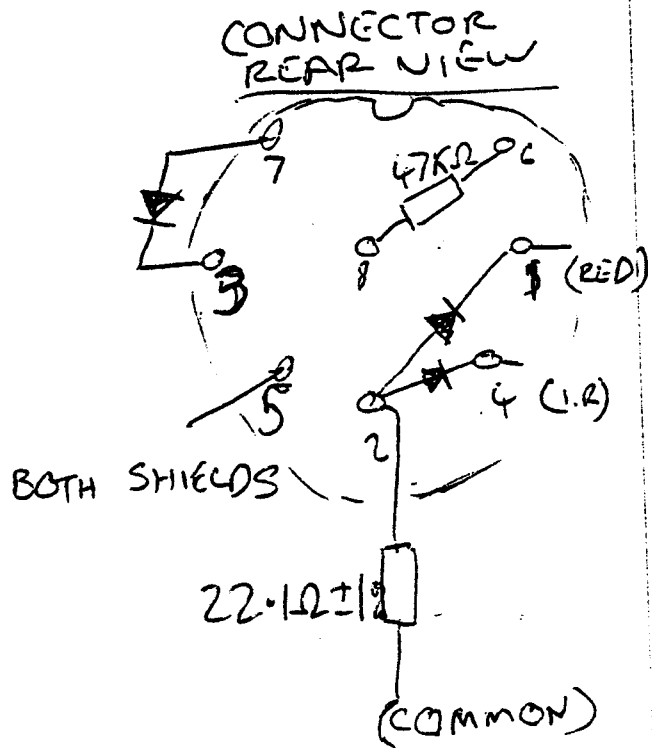 CONNECTOR
REAR VIEW
7
47KΩ
6
8
3
1 (RED)
5
4 (I.R)
2
BOTH SHIELDS
22.1Ω ±1
(COMMON)